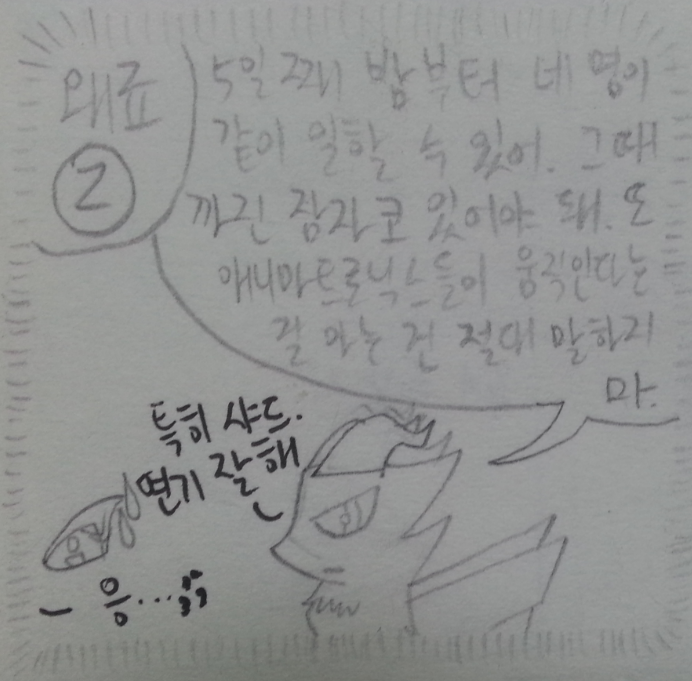 왜죠
②
5일째 밤부터 네 명이
같이 일할 수 있어. 그때
까진 잠자코 있어야 돼. 또
애니마트로닉스들이 움직인다는
걸 아는 건 절대 말하지
마.
특히 샤드.
연기 잘해
음
응...